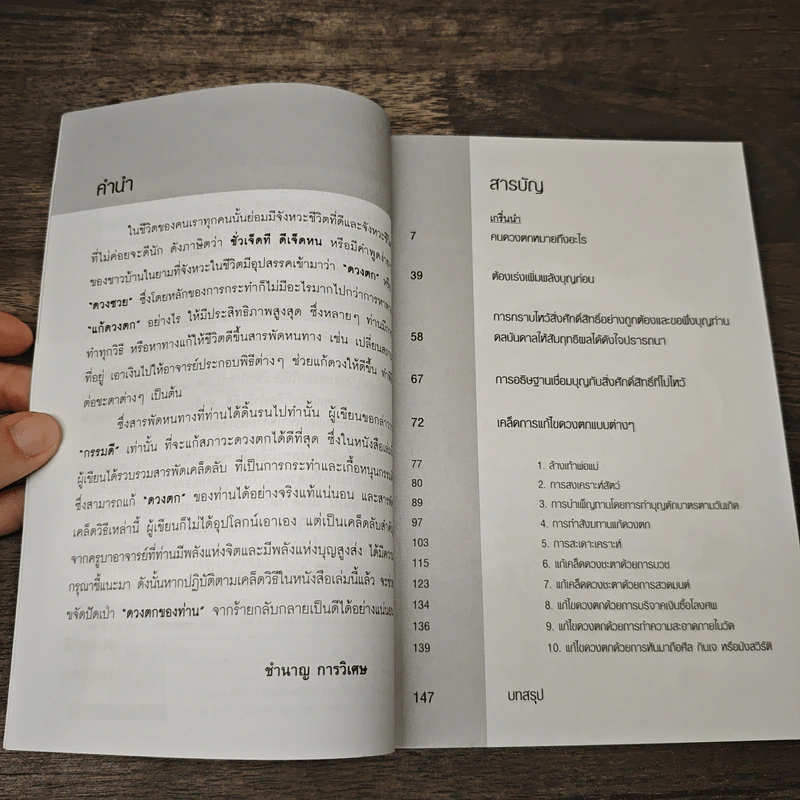 คำนำ
ในชีวิตของคนเราทุกคนนั้นย่อมมีจังหวะชีวิตที่ดีและจังหวะชีวิต
ที่ไม่ค่อยจะดีนัก ดังภาษิตว่า ชั่วเจ็ดที ดีเจ็ดหน หรือมีคำพูด
ของชาวบ้านในยามที่จังหวะในชีวิตมีอุปสรรคเข้ามาว่า "ดวงตก"
"ดวงซวย" ซึ่งโดยหลักของการกระทำก็ไม่มีอะไรมากไปกว่าการหา
"แก้ดวงตก" อย่างไร ให้มีประสิทธิภาพสูงสุด ซึ่งหลายๆ ท่าน
ทำทุกวิธี หรือหาทางแก้ให้ชีวิตดีขึ้นสารพัดหนทาง เช่น เปลี่ยน
ที่อยู่ เอาเงินไปให้อาจารย์ประกอบพิธีต่างๆ ช่วยแก้ดวงให้ดีขึ้น
ต่อชะตาต่างๆ เป็นต้น
ซึ่งสารพัดหนทางที่ท่านได้ดิ้นรนไปทำนั้น ผู้เขียนขอกล่าว
"กรรมดี" เท่านั้น ที่จะแก้สภาวะดวงตกได้ดีที่สุด ซึ่งในหนังสือเล่มนี้
ผู้เขียนได้รวบรวมสารพัดเคล็ดลับ ที่เป็นการกระทำและเกื้อหนุนกรรมดี
ซึ่งสามารถแก้ "ดวงตก" ของท่านได้อย่างจริงแท้แน่นอน และสารพัด
เคล็ดวิธีเหล่านี้ ผู้เขียนก็ไม่ได้อุปโลกน์เอาเอง แต่เป็นเคล็ดลับสำคัญ
จากครูบาอาจารย์ที่ท่านมีพลังแห่งจิตและมีพลังแห่งบุญสูงส่ง ได้มีความ
กรุณาชี้แนะมา ดังนั้นหากปฏิบัติตามเคล็ดวิธีในหนังสือเล่มนี้แล้ว จะช่วย
ขจัดปัดเป่า "ดวงตกของท่าน" จากร้ายกลับกลายเป็นดีได้อย่างแน่นอน
ชำนาญ การวิเศษ
สารบัญ
เกริ่นนำ
7 คนดวงตกหมายถึงอะไร
39 ต้องเร่งเพิ่มพลังบุญก่อน
การกราบไหว้สิ่งศักดิ์สิทธิ์อย่างถูกต้องและขอพึ่งบุญท่าน
58 ดลบันดาลให้สัมฤทธิผลได้ดังใจปรารถนา
67 การอธิษฐานเชื่อมบุญกับสิ่งศักดิ์สิทธิ์ที่ไปไหว้
72 เคล็ดการแก้ไขดวงตกแบบต่างๆ
77 1. ล้างเท้าพ่อแม่
80 2. การสงเคราะห์สัตว์
89 3. การบำเพ็ญทานโดยการทำบุญตักบาตรตามวันเกิด
97 4. การทำสังฆทานแก้ดวงตก
103 5. การสะเดาะเคราะห์
115 6. แก้เคล็ดดวงชะตาด้วยการบวช
123 7. แก้เคล็ดดวงชะตาด้วยการสวดมนต์
134 8. แก้ไขดวงตกด้วยการบริจาคเงินซื้อโลงศพ
136 9. แก้ไขดวงตกด้วยการทำความสะอาดภายในวัด
139 10. แก้ไขดวงตกด้วยการหันมาถือศีล กินเจ หรือมังสวิรัติ
147 บทสรุป